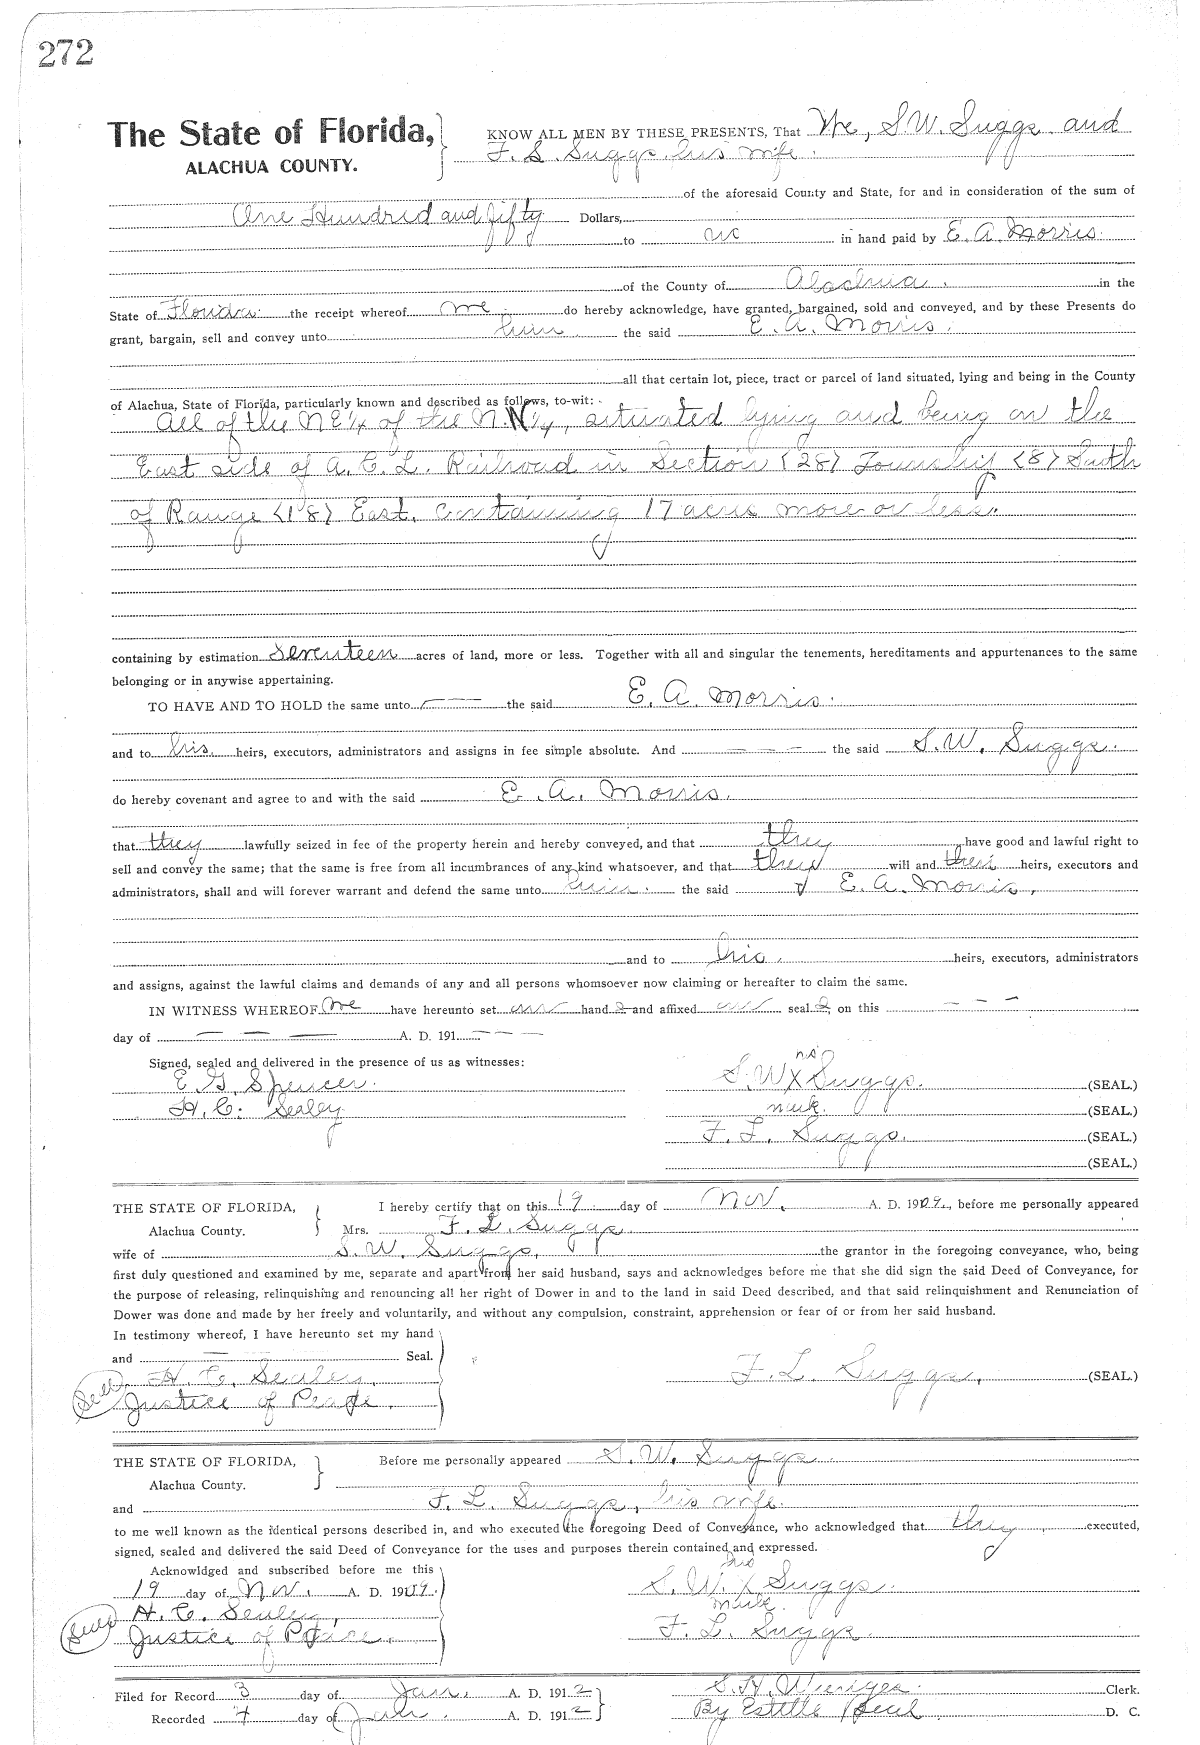 272
The State of Florida,
ALACHUA COUNTY.
KNOW ALL MEN BY THESE PRESENTS, That We, S.W. Suggs and
F. L. Suggs his wife.
of the aforesaid County and State, for and in consideration of the sum of
One Hundred and fifty Dollars,
to us in hand paid by E. A. Morris.
of the County of Alachua. in the
State of Florida. the receipt whereof we do hereby acknowledge, have granted, bargained, sold and conveyed, and by these Presents do
grant, bargain, sell and convey unto him the said E. A. Morris.
all that certain lot, piece, tract or parcel of land situated, lying and being in the County
of Alachua, State of Florida, particularly known and described as follows, to-wit:
All of the NE 1/4 of the N.W 1/4, situated lying and being on the
East side of A. C. L. Railroad in Section (28) Township (8) South
of Range (18) East. Containing 17 acres more or less.
containing by estimation Seventeen acres of land, more or less. Together with all and singular the tenements, hereditaments and appurtenances to the same
belonging or in anywise appertaining.
TO HAVE AND TO HOLD the same unto — the said E. A. Morris.
and to his heirs, executors, administrators and assigns in fee simple absolute. And — — — the said S.W. Suggs.
do hereby covenant and agree to and with the said E. A. Morris.
that they lawfully seized in fee of the property herein and hereby conveyed, and that they have good and lawful right to
sell and convey the same; that the same is free from all incumbrances of any kind whatsoever, and that they will and their heirs, executors and
administrators, shall and will forever warrant and defend the same unto him. the said E. A. Morris,
and to his. heirs, executors, administrators
and assigns, against the lawful claims and demands of any and all persons whomsoever now claiming or hereafter to claim the same.
IN WITNESS WHEREOF We have hereunto set our hand s and affixed our seal s, on this — — —
day of — — — A. D. 191 — — —
Signed, sealed and delivered in the presence of us as witnesses:
E. G. Spencer.
H. C. Sealey
his
S. W X Suggs. (SEAL.)
mark. (SEAL.)
F. L. Suggs. (SEAL.)
(SEAL.)
THE STATE OF FLORIDA,
Alachua County.
I hereby certify that on this 19 day of Nov. A. D. 1909., before me personally appeared
Mrs. F. L. Suggs
wife of S. W. Suggs, the grantor in the foregoing conveyance, who, being
first duly questioned and examined by me, separate and apart from her said husband, says and acknowledges before me that she did sign the said Deed of Conveyance, for
the purpose of releasing, relinquishing and renouncing all her right of Dower in and to the land in said Deed described, and that said relinquishment and Renunciation of
Dower was done and made by her freely and voluntarily, and without any compulsion, constraint, apprehension or fear of or from her said husband.
In testimony whereof, I have hereunto set my hand
and — — Seal.
Seal H. C. Sealey,
Justice of Peace.
F. L. Suggs, (SEAL.)
THE STATE OF FLORIDA,
Alachua County.
Before me personally appeared S. W. Suggs
and F. L. Suggs, his wife.
to me well known as the identical persons described in, and who executed the foregoing Deed of Conveyance, who acknowledged that they executed,
signed, sealed and delivered the said Deed of Conveyance for the uses and purposes therein contained and expressed.
Acknowldged and subscribed before me this
19 day of Nov. A. D. 1909.
Seal H. C. Sealey,
Justice of Peace.
his
S. W. X Suggs.
mark.
F. L. Suggs.
Filed for Record 3 day of Jan. A. D. 1912
Recorded 7 day of Jan. A. D. 1912
S. H. Wienges. Clerk.
By Estelle D. C.